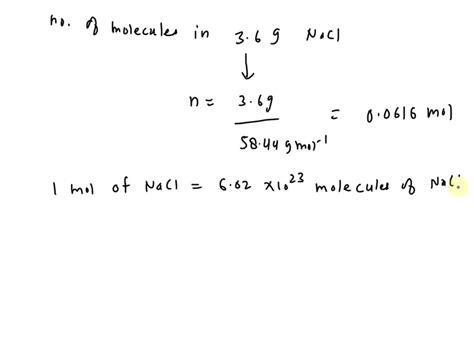 no. of molecules in 3.6 g NaCl
n = 3.6g / 58.44 g mol⁻¹ = 0.0616 mol
1 mol of NaCl = 6.02 ×10²³ molecules of NaCl